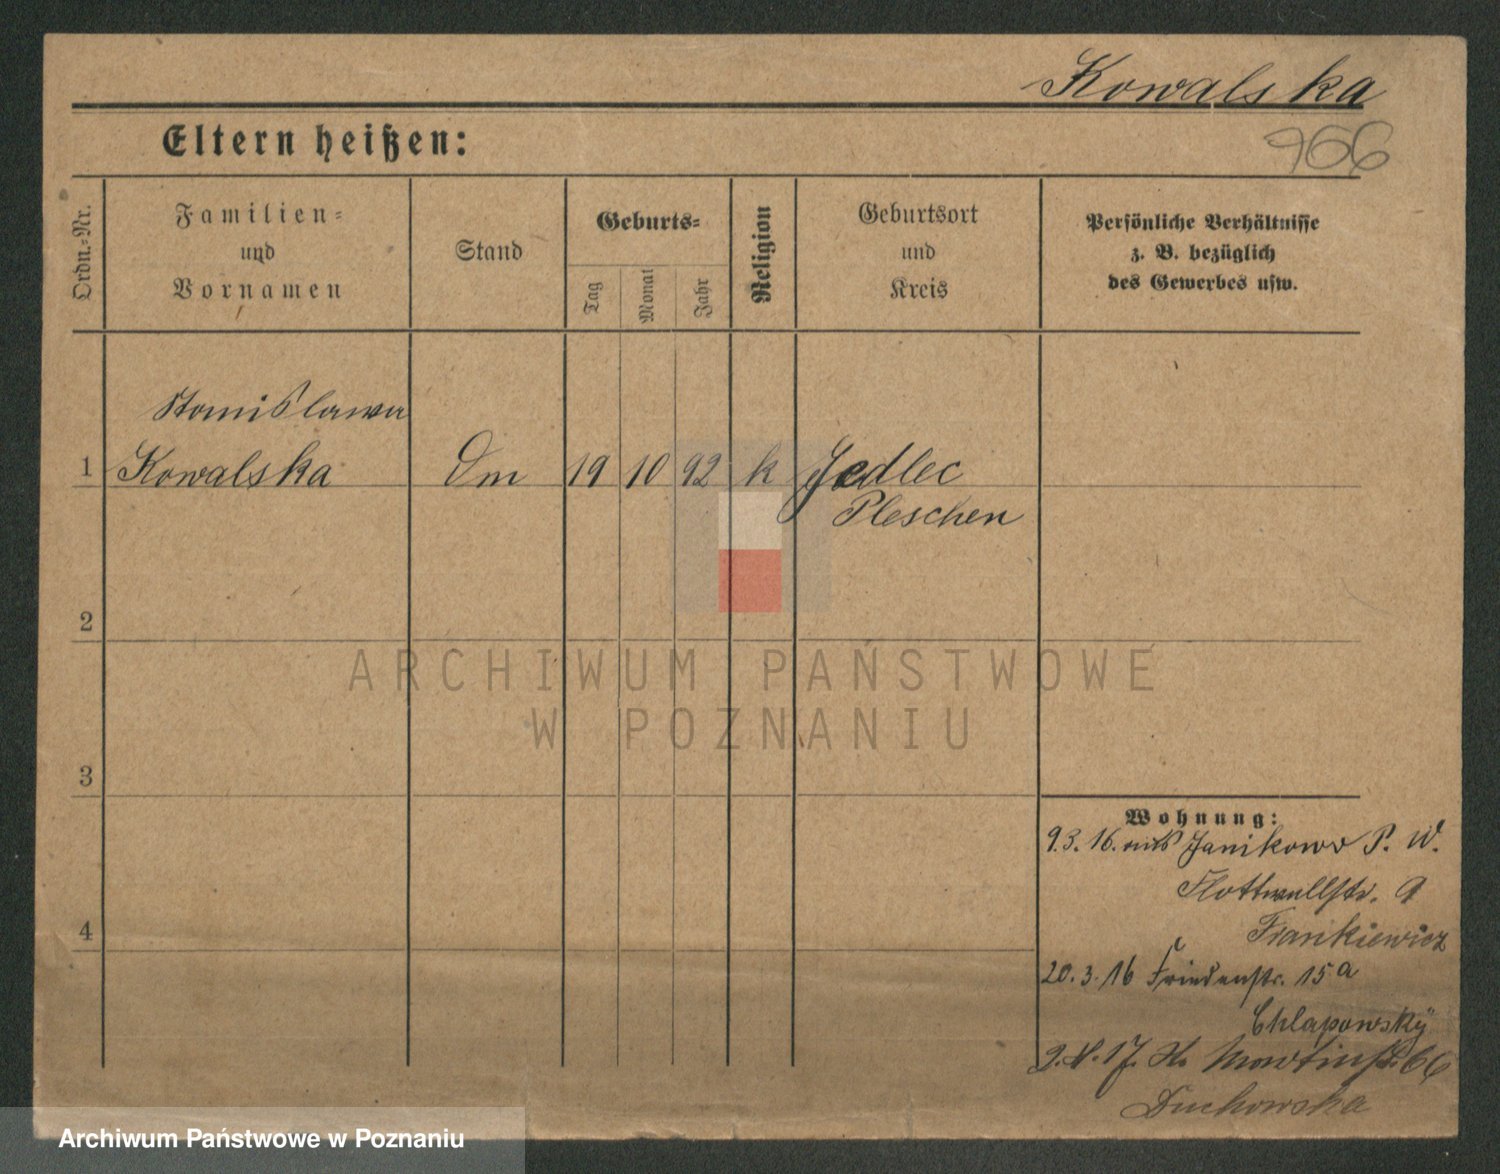 Kowalska
966
Eltern heißen:
Ordn.=Nr.
Familien=
und
Vornamen
Stand
Geburts=
Tag
Monat
Jahr
Religion
Geburtsort
und
Kreis
Persönliche Verhältnisse
z. B. bezüglich
des Gewerbes usw.
Stanislawa
1 Kowalska Dm 19 10 92 k Jedlec
Pleschen
2
3
4
ARCHIWUM PAŃSTWOWE
W POZNANIU
Wohnung:
9.3.16. aus Janikowo P. W.
Flottwellstr. 9
Frankiewicz
20.3.16 Friedenstr. 15a
Chlapowsky
17. St. Martinstr. 66
Duchowska
Archiwum Państwowe w Poznaniu